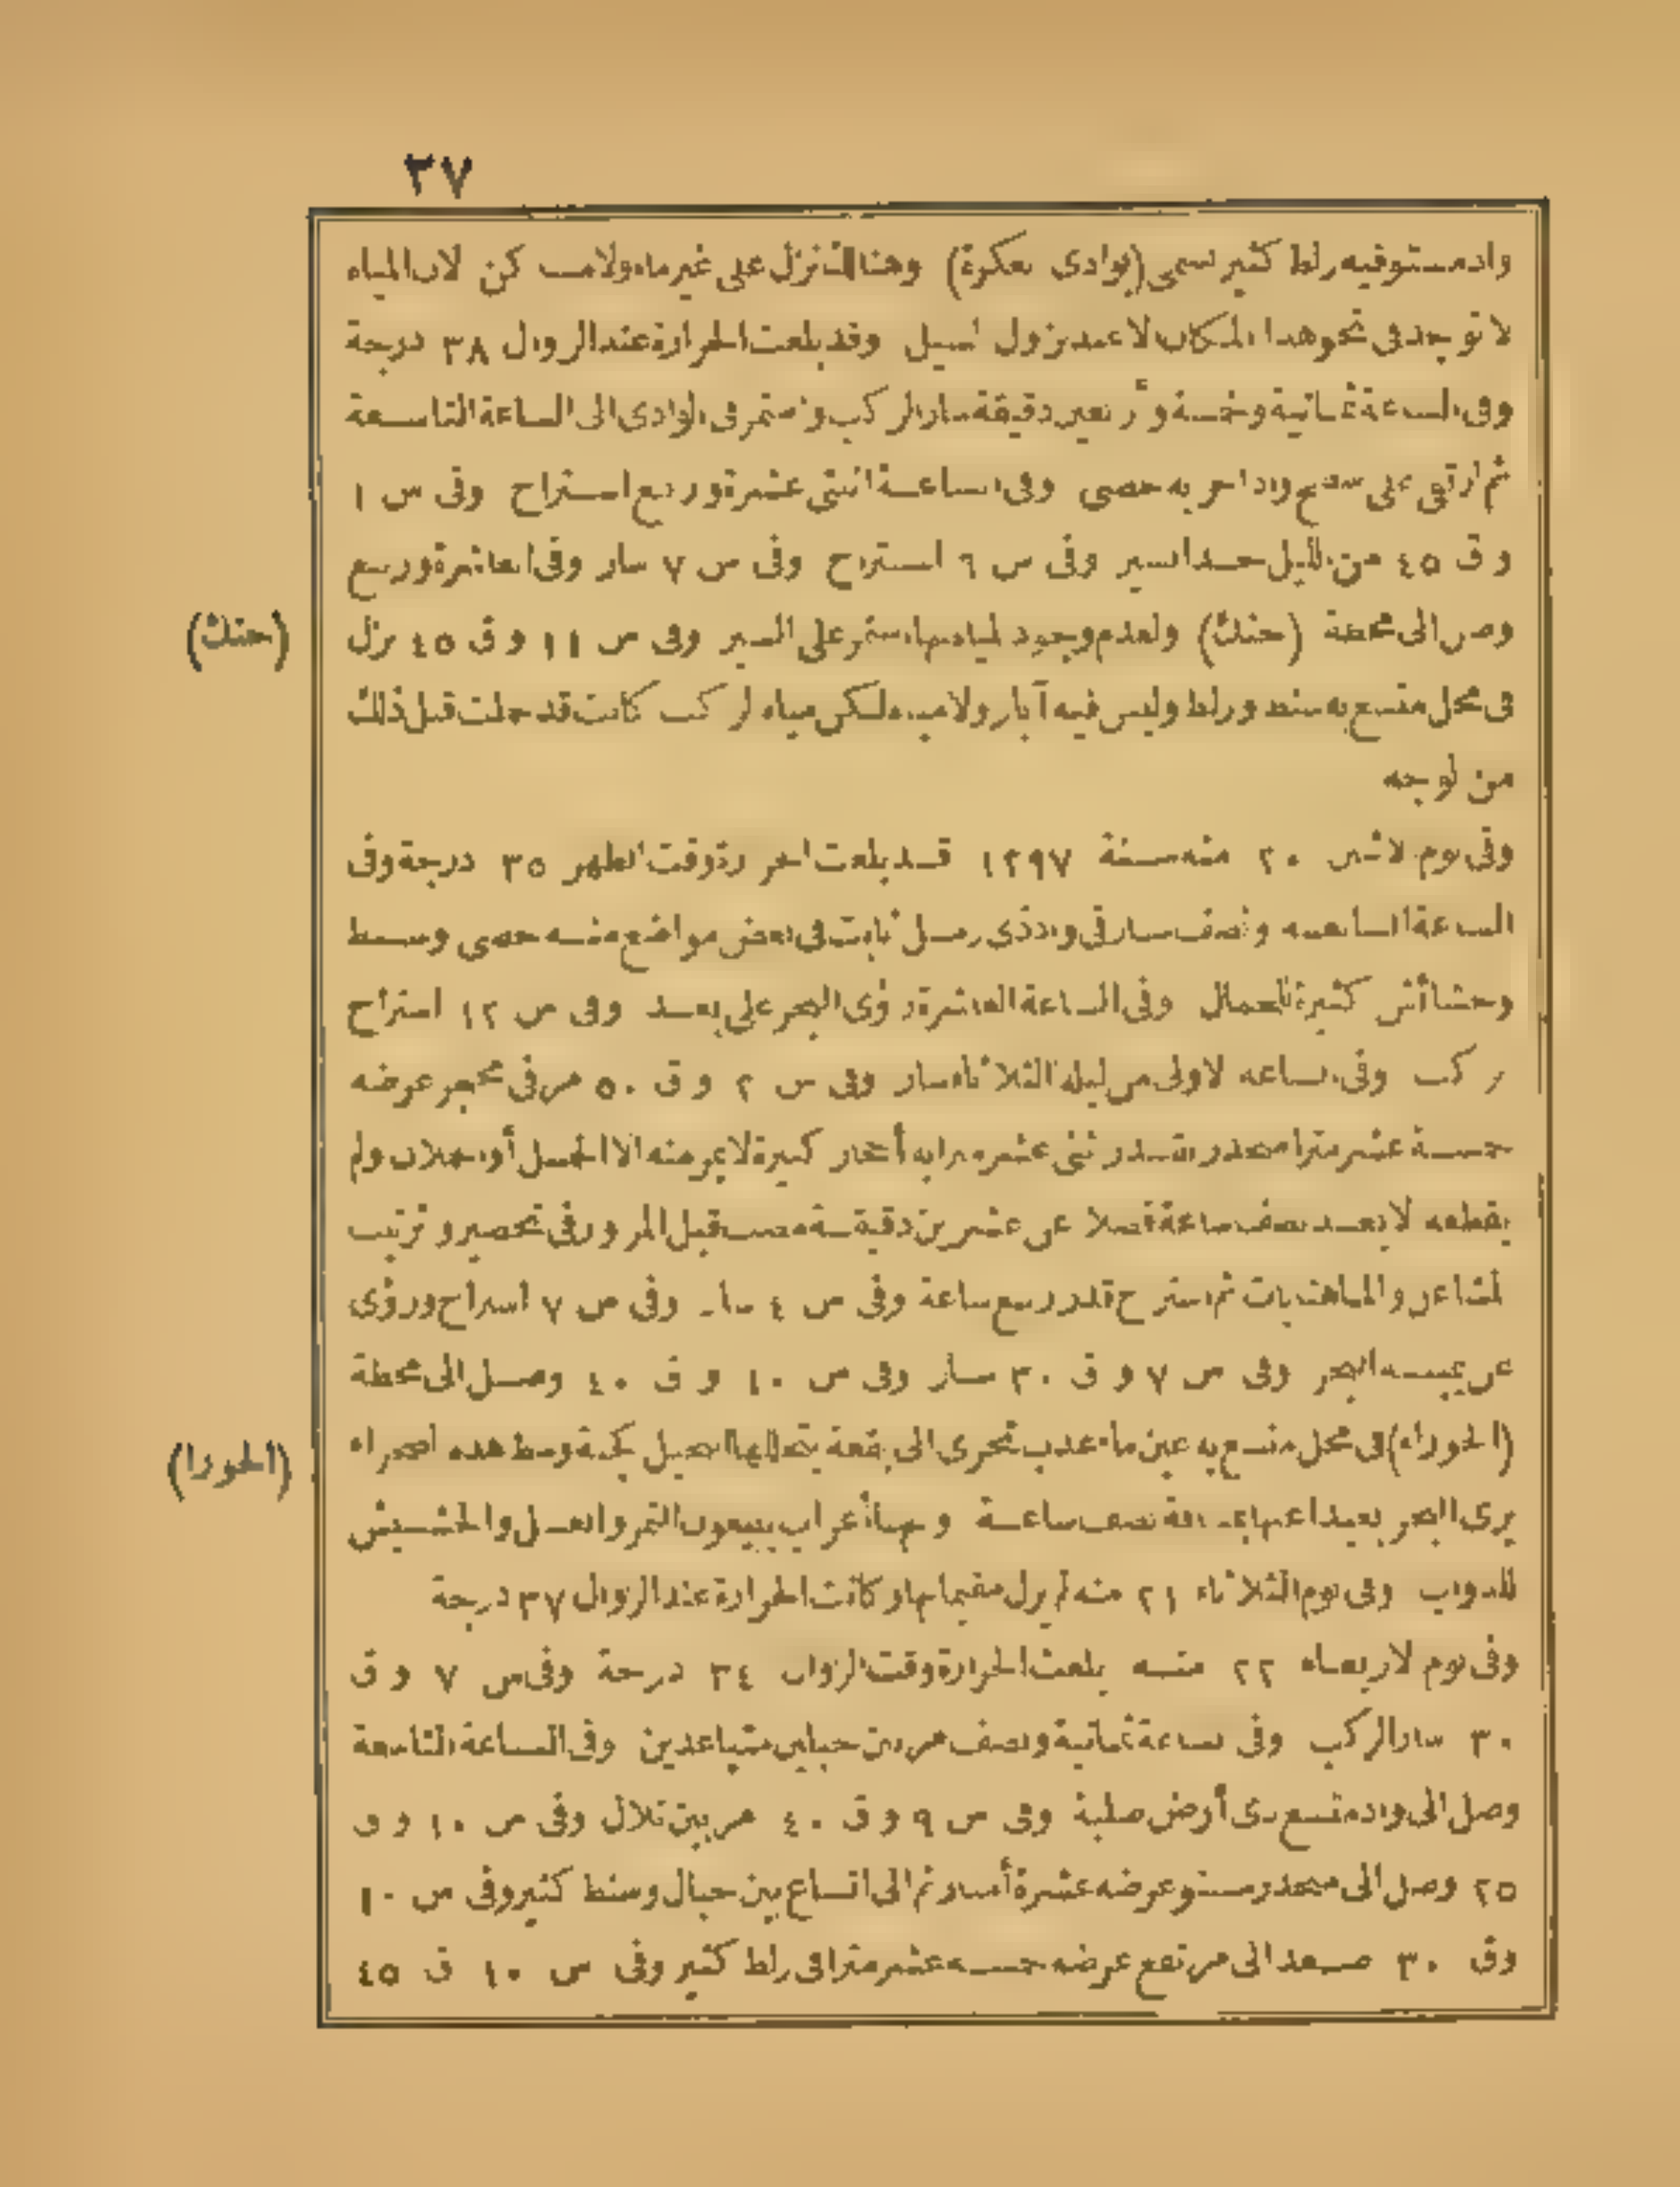 ٣٧
واد مستو فيه زلط كثير تسمى (بوادى العكرة) وهناك نزل على غير ماء ولا مساكن لان المياه
لا توجد فى نحو هذا المكان الا عند نزول السيل وقد بلغت الحرارة عند الزوال ٣٨ درجة
وفى الساعة الثمانية وخمسة وأربعين دقيقة سار الركب واستمر فى الوادى الى الساعة التاسعة
ثم ارتقى على سفح واد آخر به حصى وفى الساعة اثنتى عشرة وربع استراح وفى س ١
و ق ٤٥ من الليل جد السير وفى س ٦ استراح وفى س ٧ سار وفى العاشرة وربع
وصل الى محطة (حنك) ولعدم وجود المياه بها استمر على السير وفى س ١١ و ق ٤٥ نزل
فى محل متسع به سنط وزلط وليس فيه آبار ولا مياه لكن مياه الركب كانت قد حملت قبل ذلك
من الوجه
وفى يوم الاثنين ٢٠ منه سنة ١٢٩٧ قد بلغت الحرارة وقت الظهر ٣٥ درجة وفى
الساعة السابعة ونصف سار فى واد ذى رمل ثابت فى بعض مواضع منه حصى وسنط
وحشائش كثيرة للجمال وفى الساعة العاشرة رؤى البحر على بعد وفى س ١٢ استراح
الركب وفى الساعة الاولى من ليلة الثلاثاء سار وفى س ٢ و ق ٥٠ مر فى محجر عرضه
خمسة عشر مترا منحدر بقدر اثنى عشر مترا به أحجار كبيرة لا يمر منه الا الجمل أو الجملان ولم
يقطعه الا بعد نصف ساعة فضلا عن عشرين دقيقة مضت قبل المرور فى تحضير وترتيب
المشاعل والماهتابات ثم استراح قدر ربع ساعة وفى س ٤ سار وفى س ٧ استراح ورؤى
عن يمينه البحر وفى س ٧ و ق ٣٠ سار وفى س ١٠ و ق ٤٠ وصل الى محطة
(الحوراء) فى محل متسع به عين ماء عذب تجرى الى بقعة يتخللها النخيل كجنة وسط هذه الصحراء
يرى البحر بعيدا عنها بمسافة نصف ساعة وبها أعراب يبيعون التمر والعسل والحشيش
للدواب وفى يوم الثلاثاء ٢١ منه لم يزل مقيما بها وكانت الحرارة عند الزوال ٣٧ درجة
وفى يوم الاربعاء ٢٢ منه بلغت الحرارة وقت الزوال ٣٤ درجة وفى س ٧ و ق
٣٠ سار الركب وفى الساعة الثمانية ونصف مر بين جبلين متباعدين وفى الساعة التاسعة
وصل الى واد متسع ذى أرض صلبة وفى س ٩ و ق ٤٠ مر بين تلال وفى س ١٠ و ق
٢٥ وصل الى منحدر مستو عرضه عشرة أمتار ثم الى اتساع بين جبال وسنط كثير وفى س ١٠
وق ٣٠ صعد الى مرتفع عرضه خمسه عشر مترا فى زلط كثير وفى س ١٠ ق ٤٥
(حنك)
(الحورا)